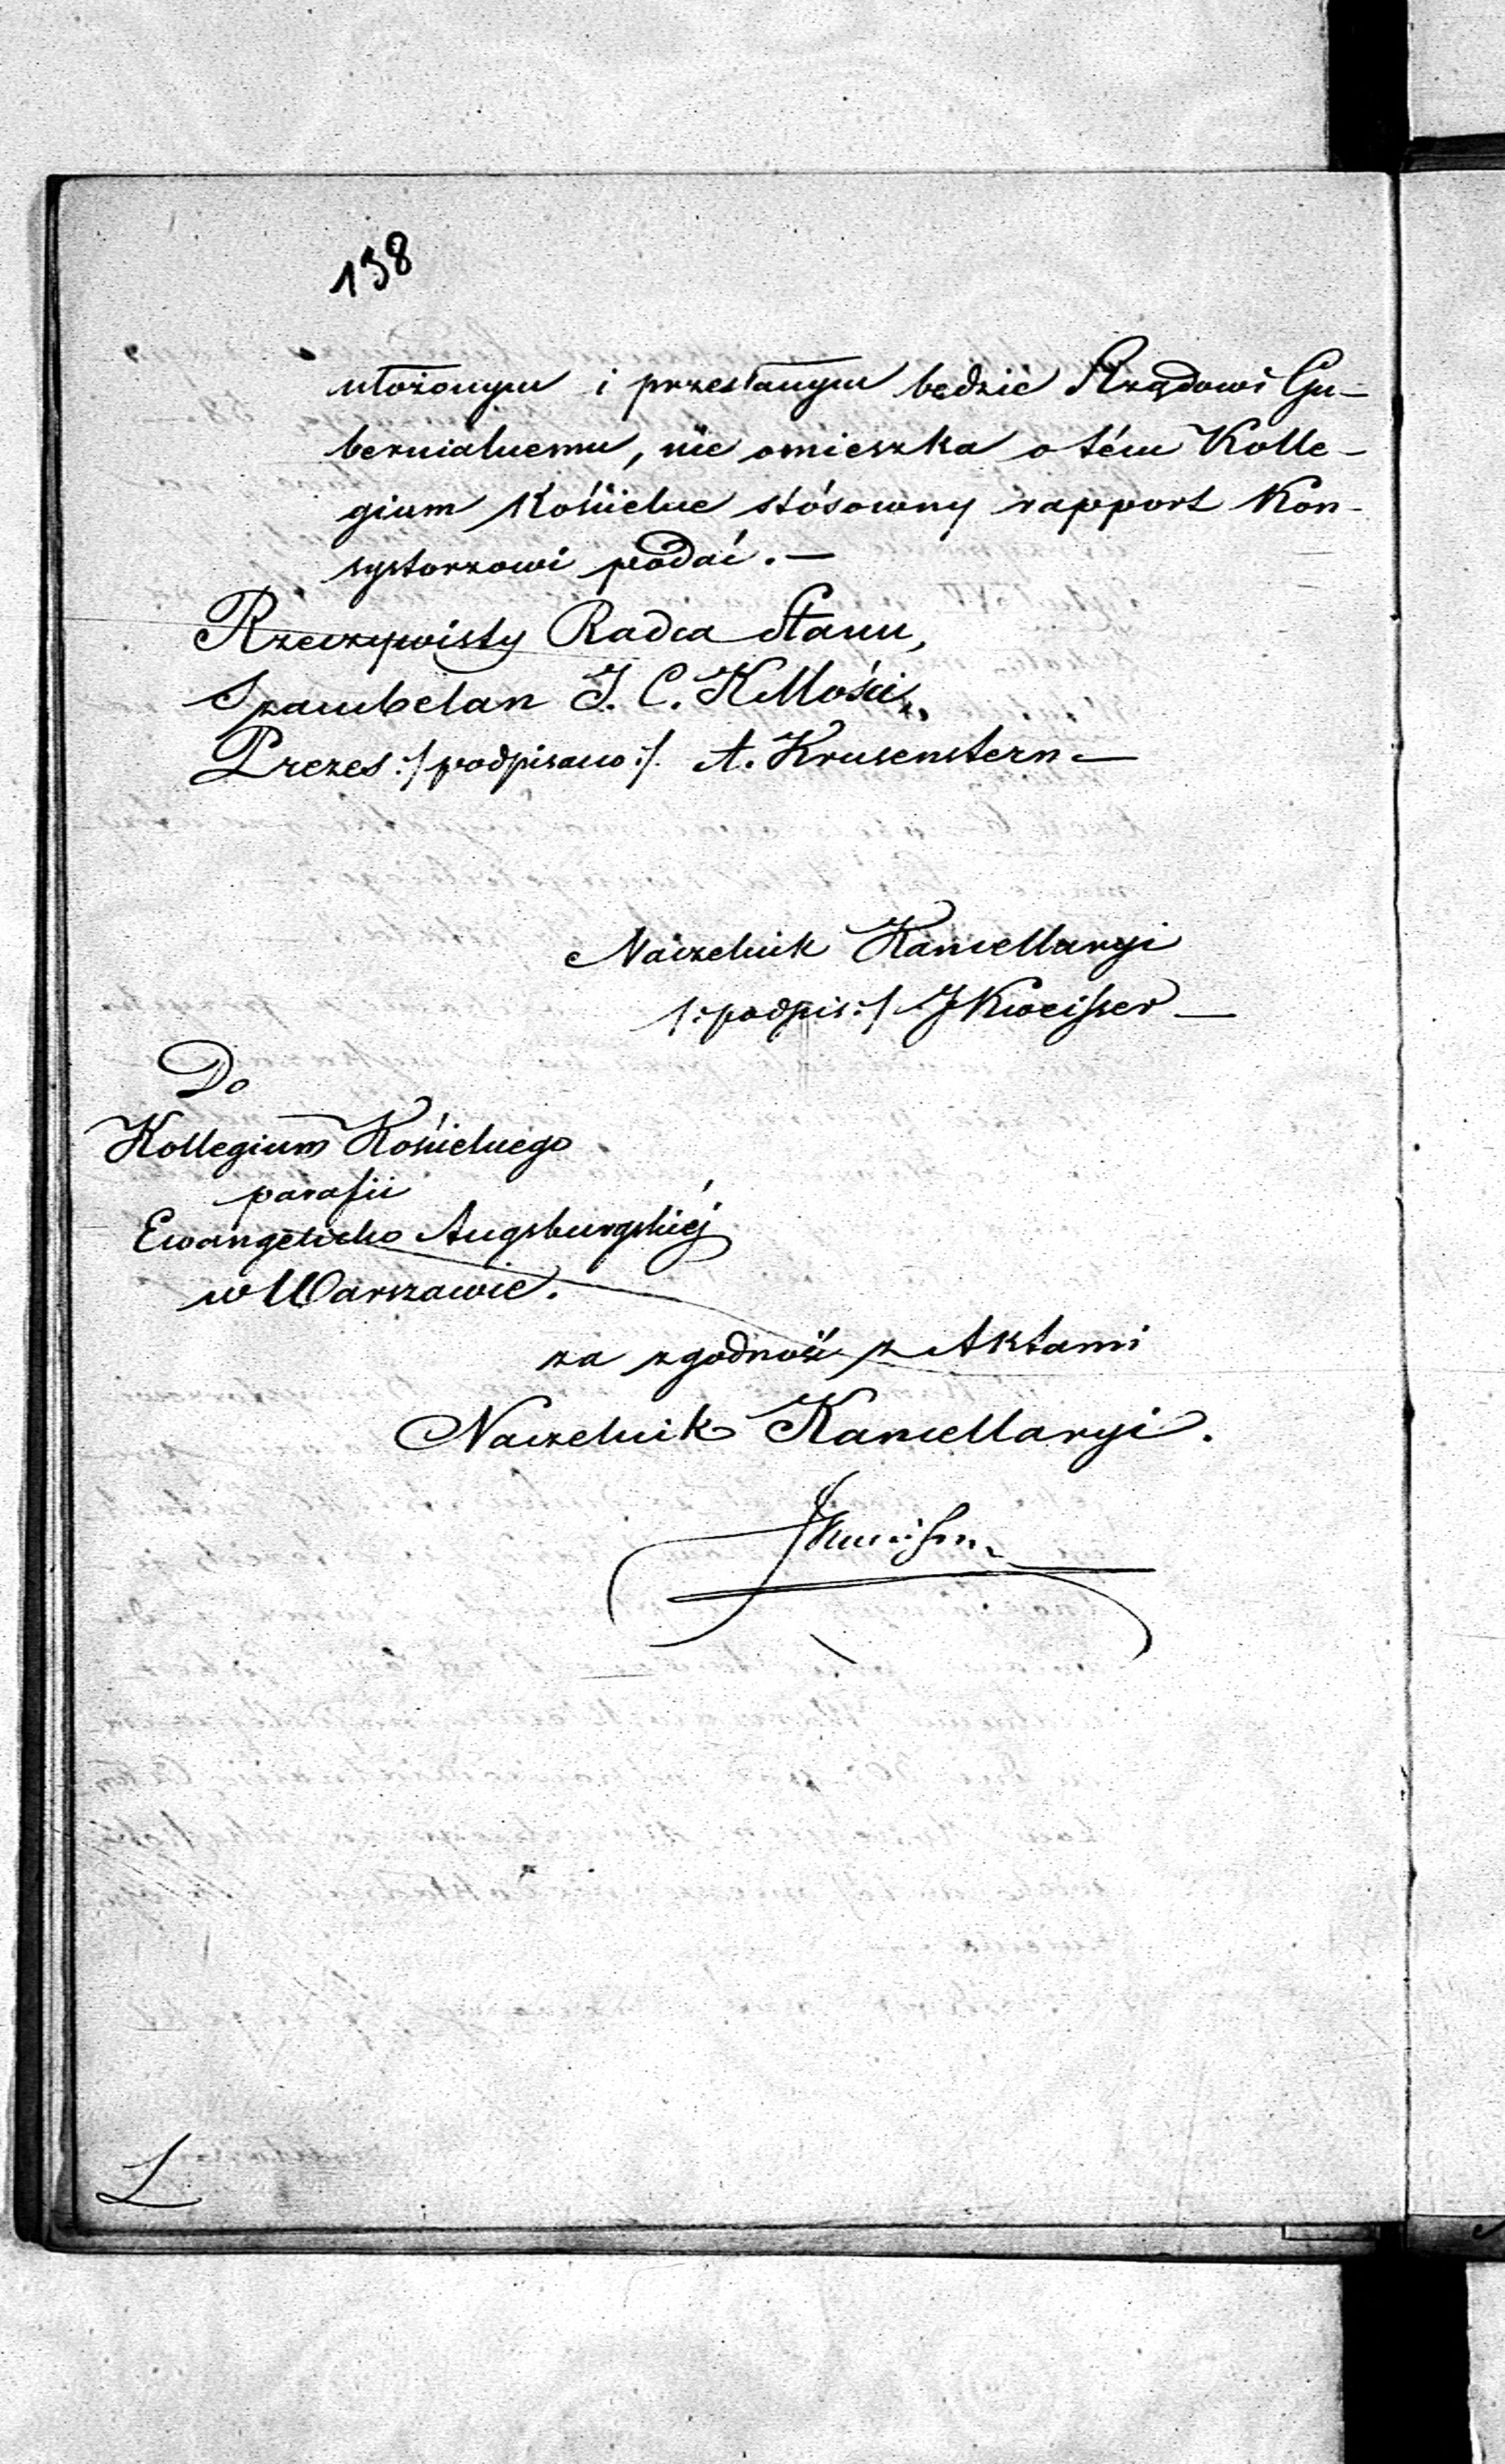 138
ułożonym i przesłanym będzie Rządowi Gu-
bernialnemu, nie omieszka o tém Kolle-
gium Kościelne stósowny rapport Kon-
systorzowi podać.—
Rzeczywisty Radca Stanu,
Szambelan J. C. K Mości,
Prezes :/podpisano:/. A. Krusenstern—
Naczelnik Kancellaryi
/:podpis:/ J Kweisser—
Do
Kollegium Kościelnego
parafii
Ewangelicko Augsburgskiéj
w Warszawie.
za zgodność z Aktami
Naczelnik Kancellaryi.
L